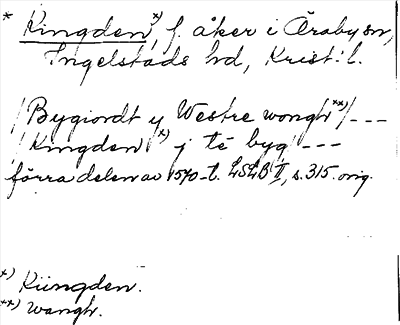 * Kingden *), f. åker i Öraby sn,
Ingelstads hd, Krist. l.
/Bygiordt y Westre wongh **)/ ---
/Kingden/ *) j té byg/ ---
förra delen av 1570-t. LSLB II, s. 315. orig.
*) Kiingden.
**) wangh.